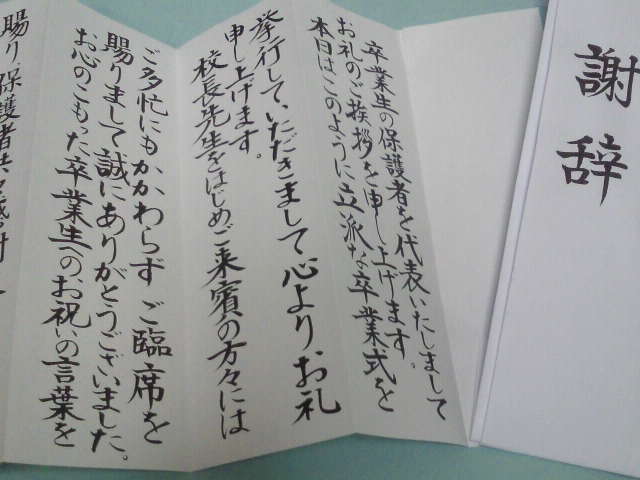 謝辞
卒業生の保護者を代表いたしまして
お礼のご挨拶を申し上げます。
本日はこのように立派な卒業式を
挙行していただきまして心よりお礼
申し上げます。
校長先生をはじめご来賓の方々には
ご多忙にもかかわらずご臨席を
賜りまして誠にありがとうございました。
お心のこもった卒業生へのお祝いの言葉を
賜り、保護者共々感謝